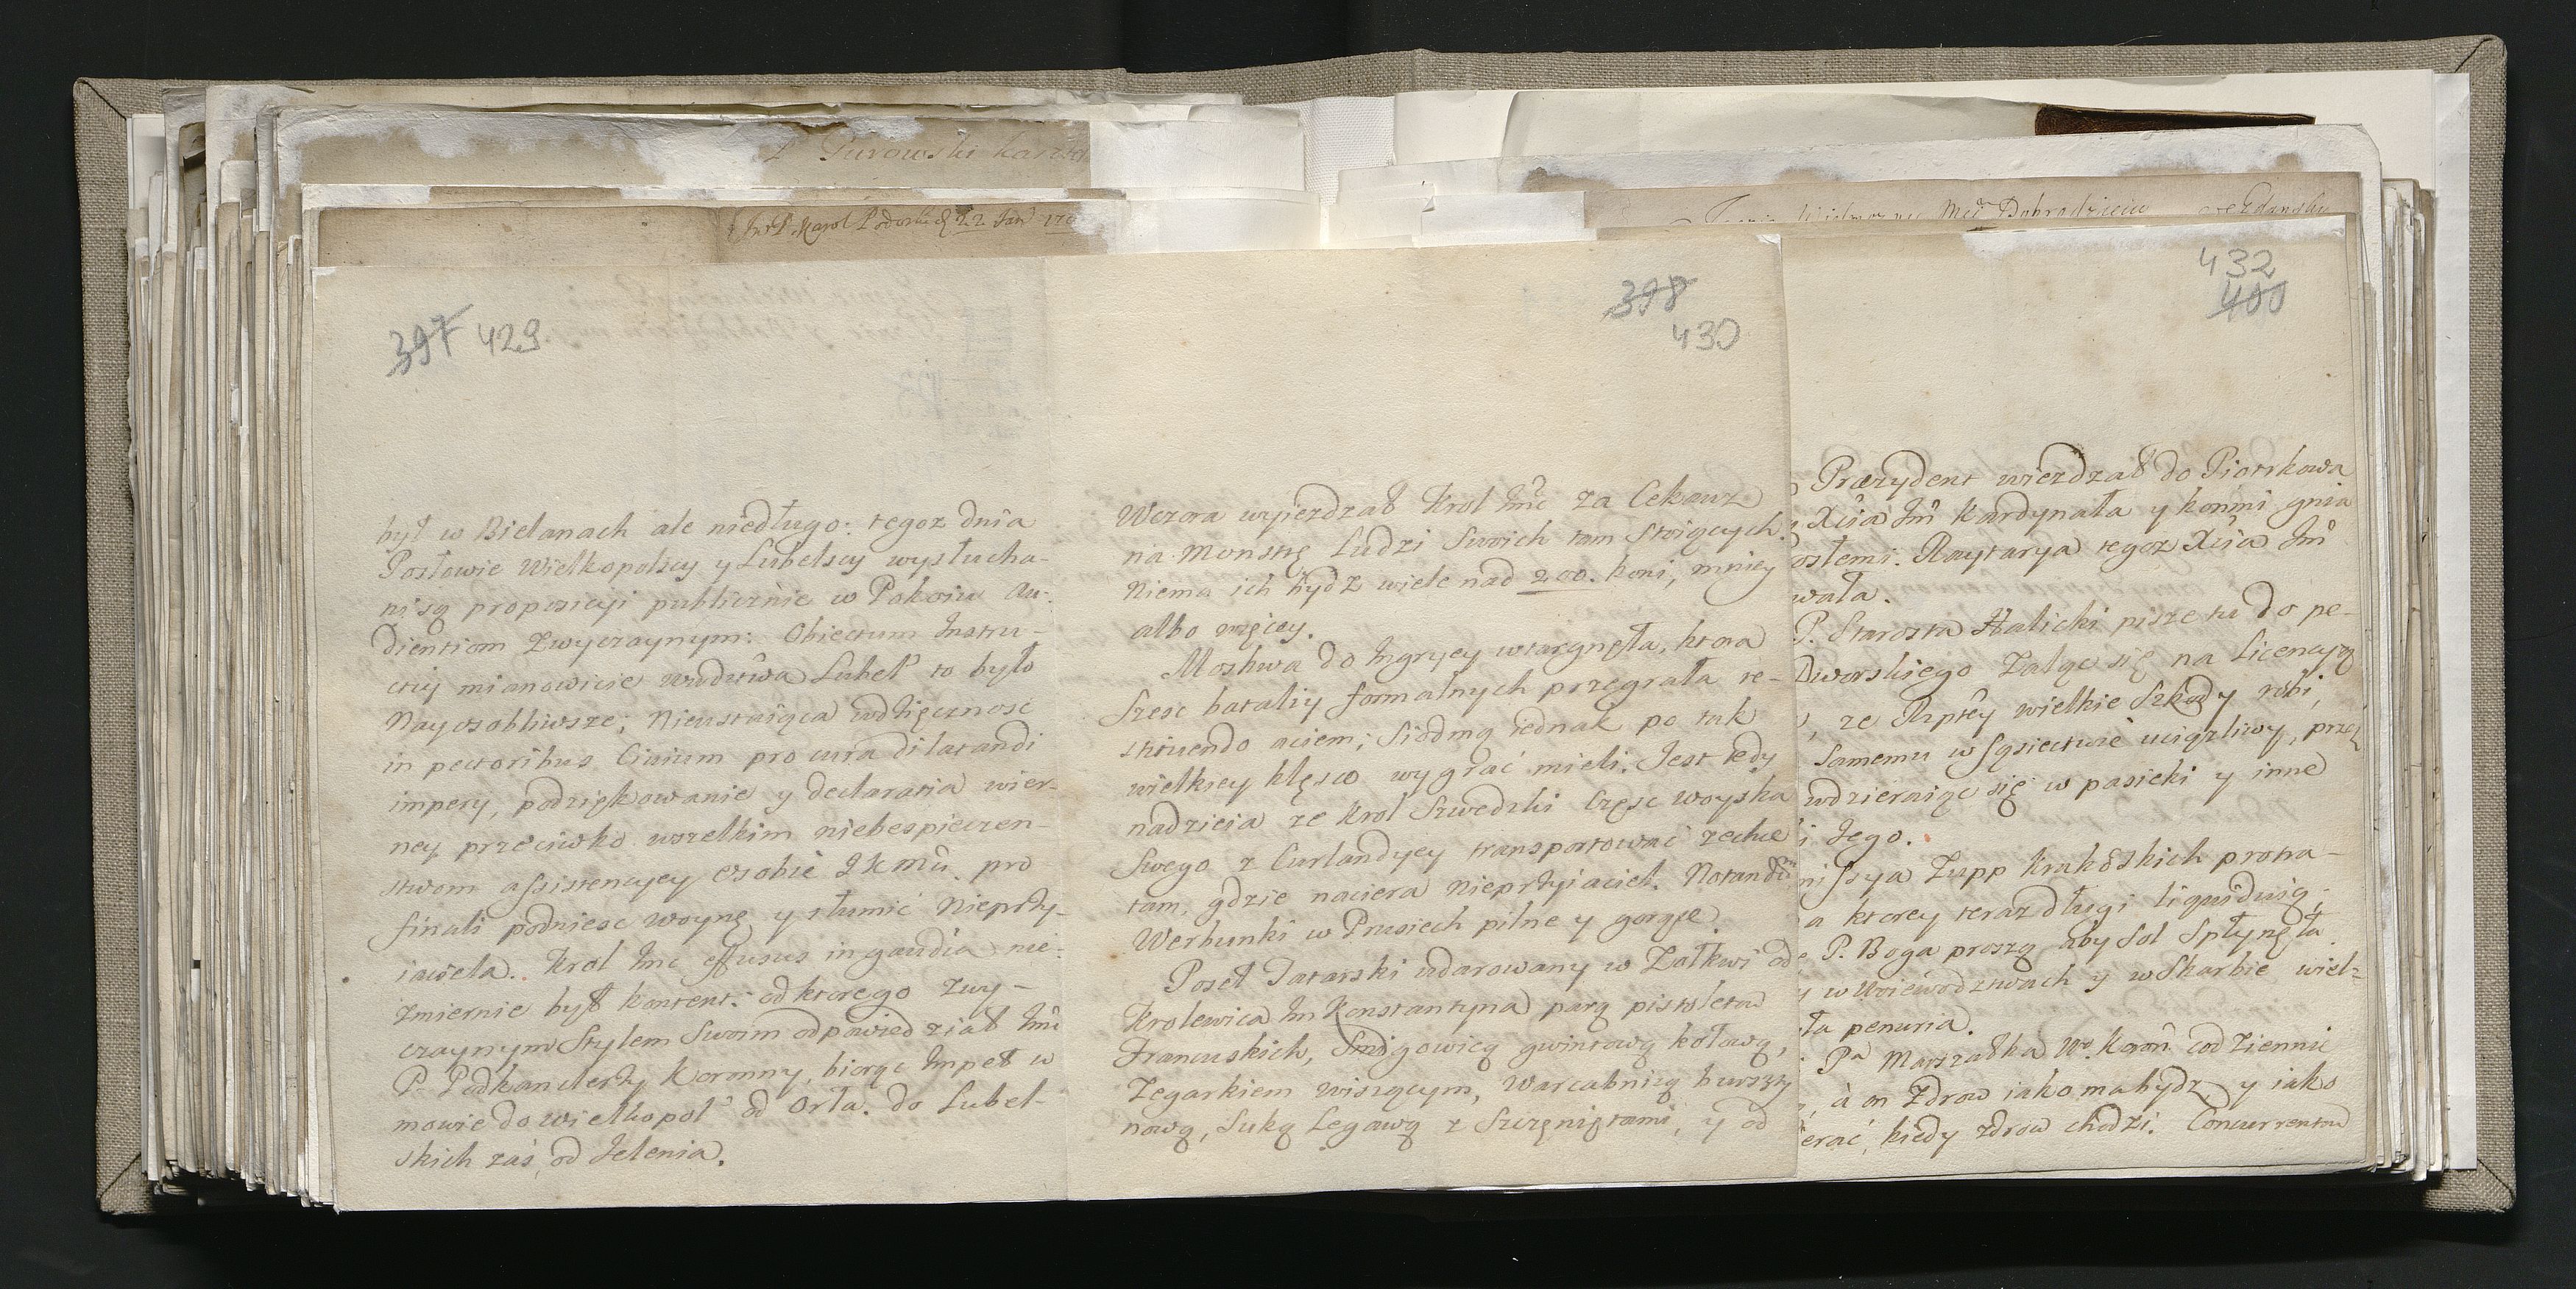 Purowski
Jmć P. Karol Podoski 22 Jan
Dobrodzieiu
397 429
był w Bielanach ale niedługo: tegoz dnia
Posłowie Wielkopolscy y Lubelscy wysłucha-
ni są propozicyi publicznie w Pokoiu Au-
dientiom zwyczaynym: Obiectum Instru-
ctij mianowicie wudztwa Lubel to było
Nayosobliwsze; Nieustaiąca wdzięcznosc
in pectoribus Ciuium pro cura dilatandi
impery, podziękowanie y declaratia wier-
ney przeciwko wszelkim niebespieczen-
stwom assistencyey osobie JKmci. pro
finali podniesc woynę y stumić Nieprzy-
iaciela. Krol Jmć effusus in gaudia nie-
zmiernie był kontent: od ktorego zwy-
czaynym Stylem Swoim odpowiedział Jmć
P. Podkanclerzy Koronny, biorąc Impet w
mowie do wielkopol od Orła. do Lubel-
skich zaś, od Jelenia.
398
430
Wczora wyiezdzał Krol Jmć za Cekauz
na Monstrę Ludzi Swoich tam Stoiących.
Niema ich bydz wiele nad 200. koni, mniey
albo więcey.
Moskwa do Ingryey wtargnęła, ktora
Szesc bataliy formalnych przegrała re-
stituendo aciem; Siodmą iednak po tak
wielkiey klęsce wygrać mieli. Jest tedy
nadzieia ze Krol Szwedzki Częsc woyska
Swego z Curlandyey transportować zechce
tam, gdzie naciera nieprzyiaciel. Notandum
Werbunki w Prusiech pilne y gorące.
Poseł Tatarski udarowany w Zołkwi od
Krolewica Jm Konstantyna parą pistoletow
Francuskich, gwintową kołową,
Zegarkiem wiszącym, Warcabnicą burszty
nową, Suką Legawą z Szczeniętami, y od
432
400
Præzydent wiezdzał do Piotrkowa
Xcia Jm Kardynała y konmi gnia
osłemi. Raytarya tegoz Xcia Jm
wała.
P. Starosta Halicki pisze tu do pe-
Dworskiego zaląc się na Licencyą
, ze Rptey wielkie Szkody robi,
Samemu w Sąsiectwie uciązliwy, prze
wdzieraiąc się w pasieki y inne
i Jego.
nissya Zupp Krakoskich protra-
a ktorey teraz długi liquiduią;
P. Boga proszą aby Sol Spłynęła
w Woiewodztwach y w Skarbie wiel-
ła penuria.
Pa Marszałka Wo. Koron codziennie
, à on Zdrow iako ma bydz y iako
ierać, kiedy zdrow chodzi. Concurrentow